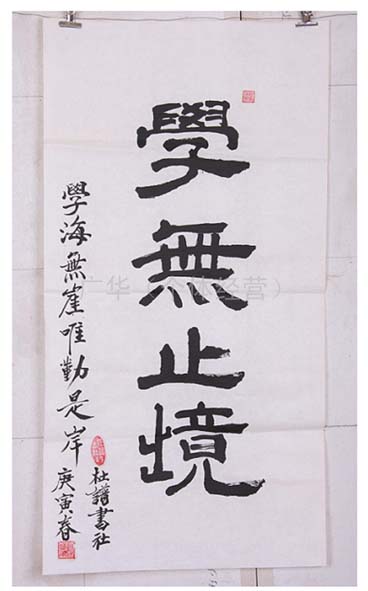 學無止境
學海無崖唯勤是岸
庚寅春
杜譜書社
广华（个体经营）